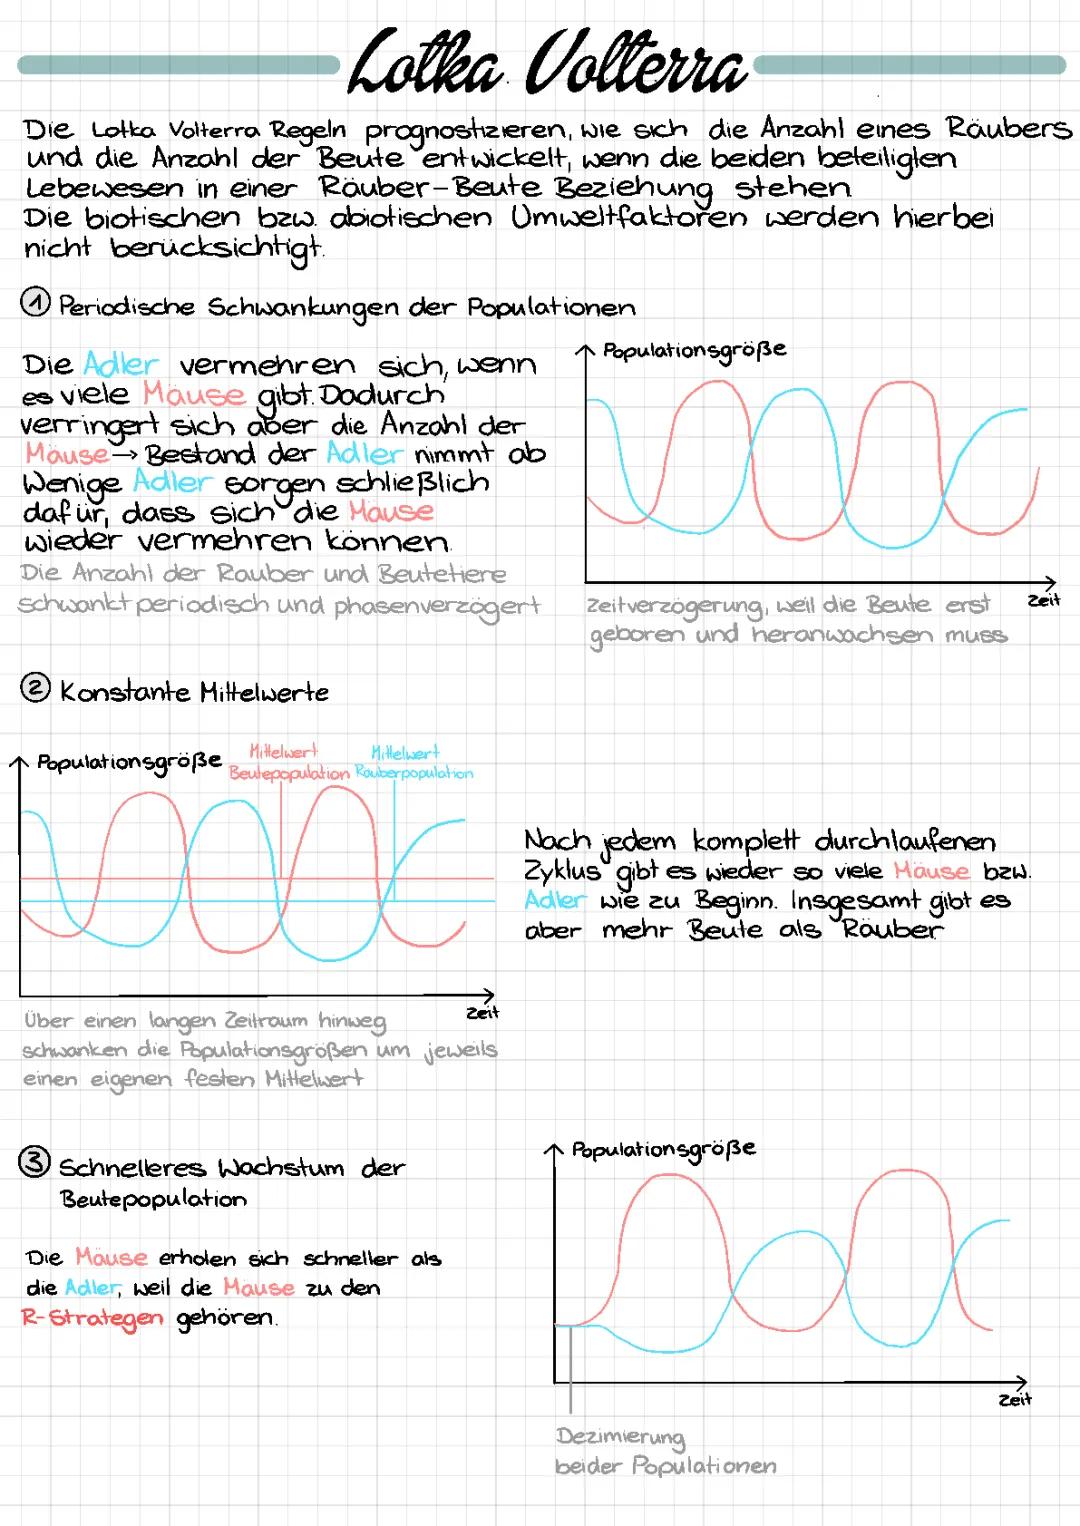 Lotka Volterra
Die Lotka Volterra Regeln prognostizieren, wie sich die Anzahl eines Räubers
und die Anzahl der Beute entwickelt, wenn die beiden beteiligten
Lebewesen in einer Räuber-Beute Beziehung stehen
Die biotischen bzw. abiotischen Umweltfaktoren werden hierbei
nicht berücksichtigt.
① Periodische Schwankungen der Populationen
Die Adler vermehren sich, wenn
es viele Mäuse gibt. Dadurch
verringert sich aber die Anzahl der
Mäuse → Bestand der Adler nimmt ab
Wenige Adler sorgen schließlich
dafür, dass sich die Mäuse
wieder vermehren können.
Die Anzahl der Räuber und Beutetiere
schwankt periodisch und phasenverzögert
Populationsgröße
Zeit
Zeitverzögerung, weil die Beute erst
geboren und heranwachsen muss
② Konstante Mittelwerte
Populationsgröße
Mittelwert
Beutepopulation
Mittelwert
Räuberpopulation
Zeit
Nach jedem komplett durchlaufenen
Zyklus gibt es wieder so viele Mäuse bzw.
Adler wie zu Beginn. Insgesamt gibt es
aber mehr Beute als Räuber
Über einen langen Zeitraum hinweg
schwanken die Populationsgrößen um jeweils
einen eigenen festen Mittelwert
③ Schnelleres Wachstum der
Beutepopulation
Die Mäuse erholen sich schneller als
die Adler, weil die Mäuse zu den
R-Strategen gehören.
Populationsgröße
Zeit
Dezimierung
beider Populationen